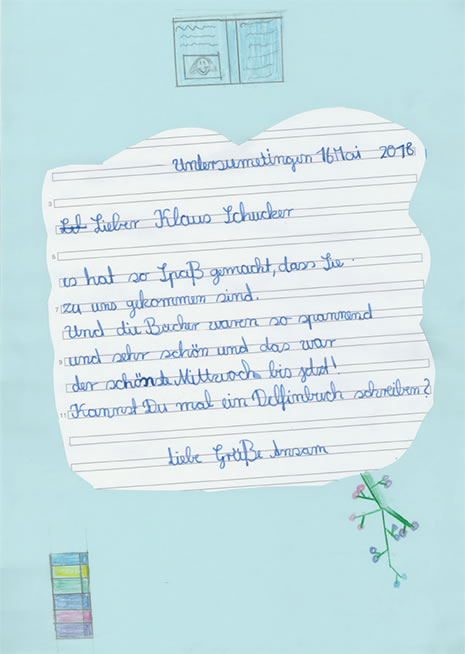 Untersumetingen 16 Mai 2018
Lieber Klaus Schucker
es hat so Spaß gemacht, dass Sie
zu uns gekommen sind.
Und die Bücher waren so spannend
und sehr schön und das war
der schönste Mittwoch bis jetzt!
Kannst Du mal ein Delfinbuch schreiben?
Liebe Grüße Ansam